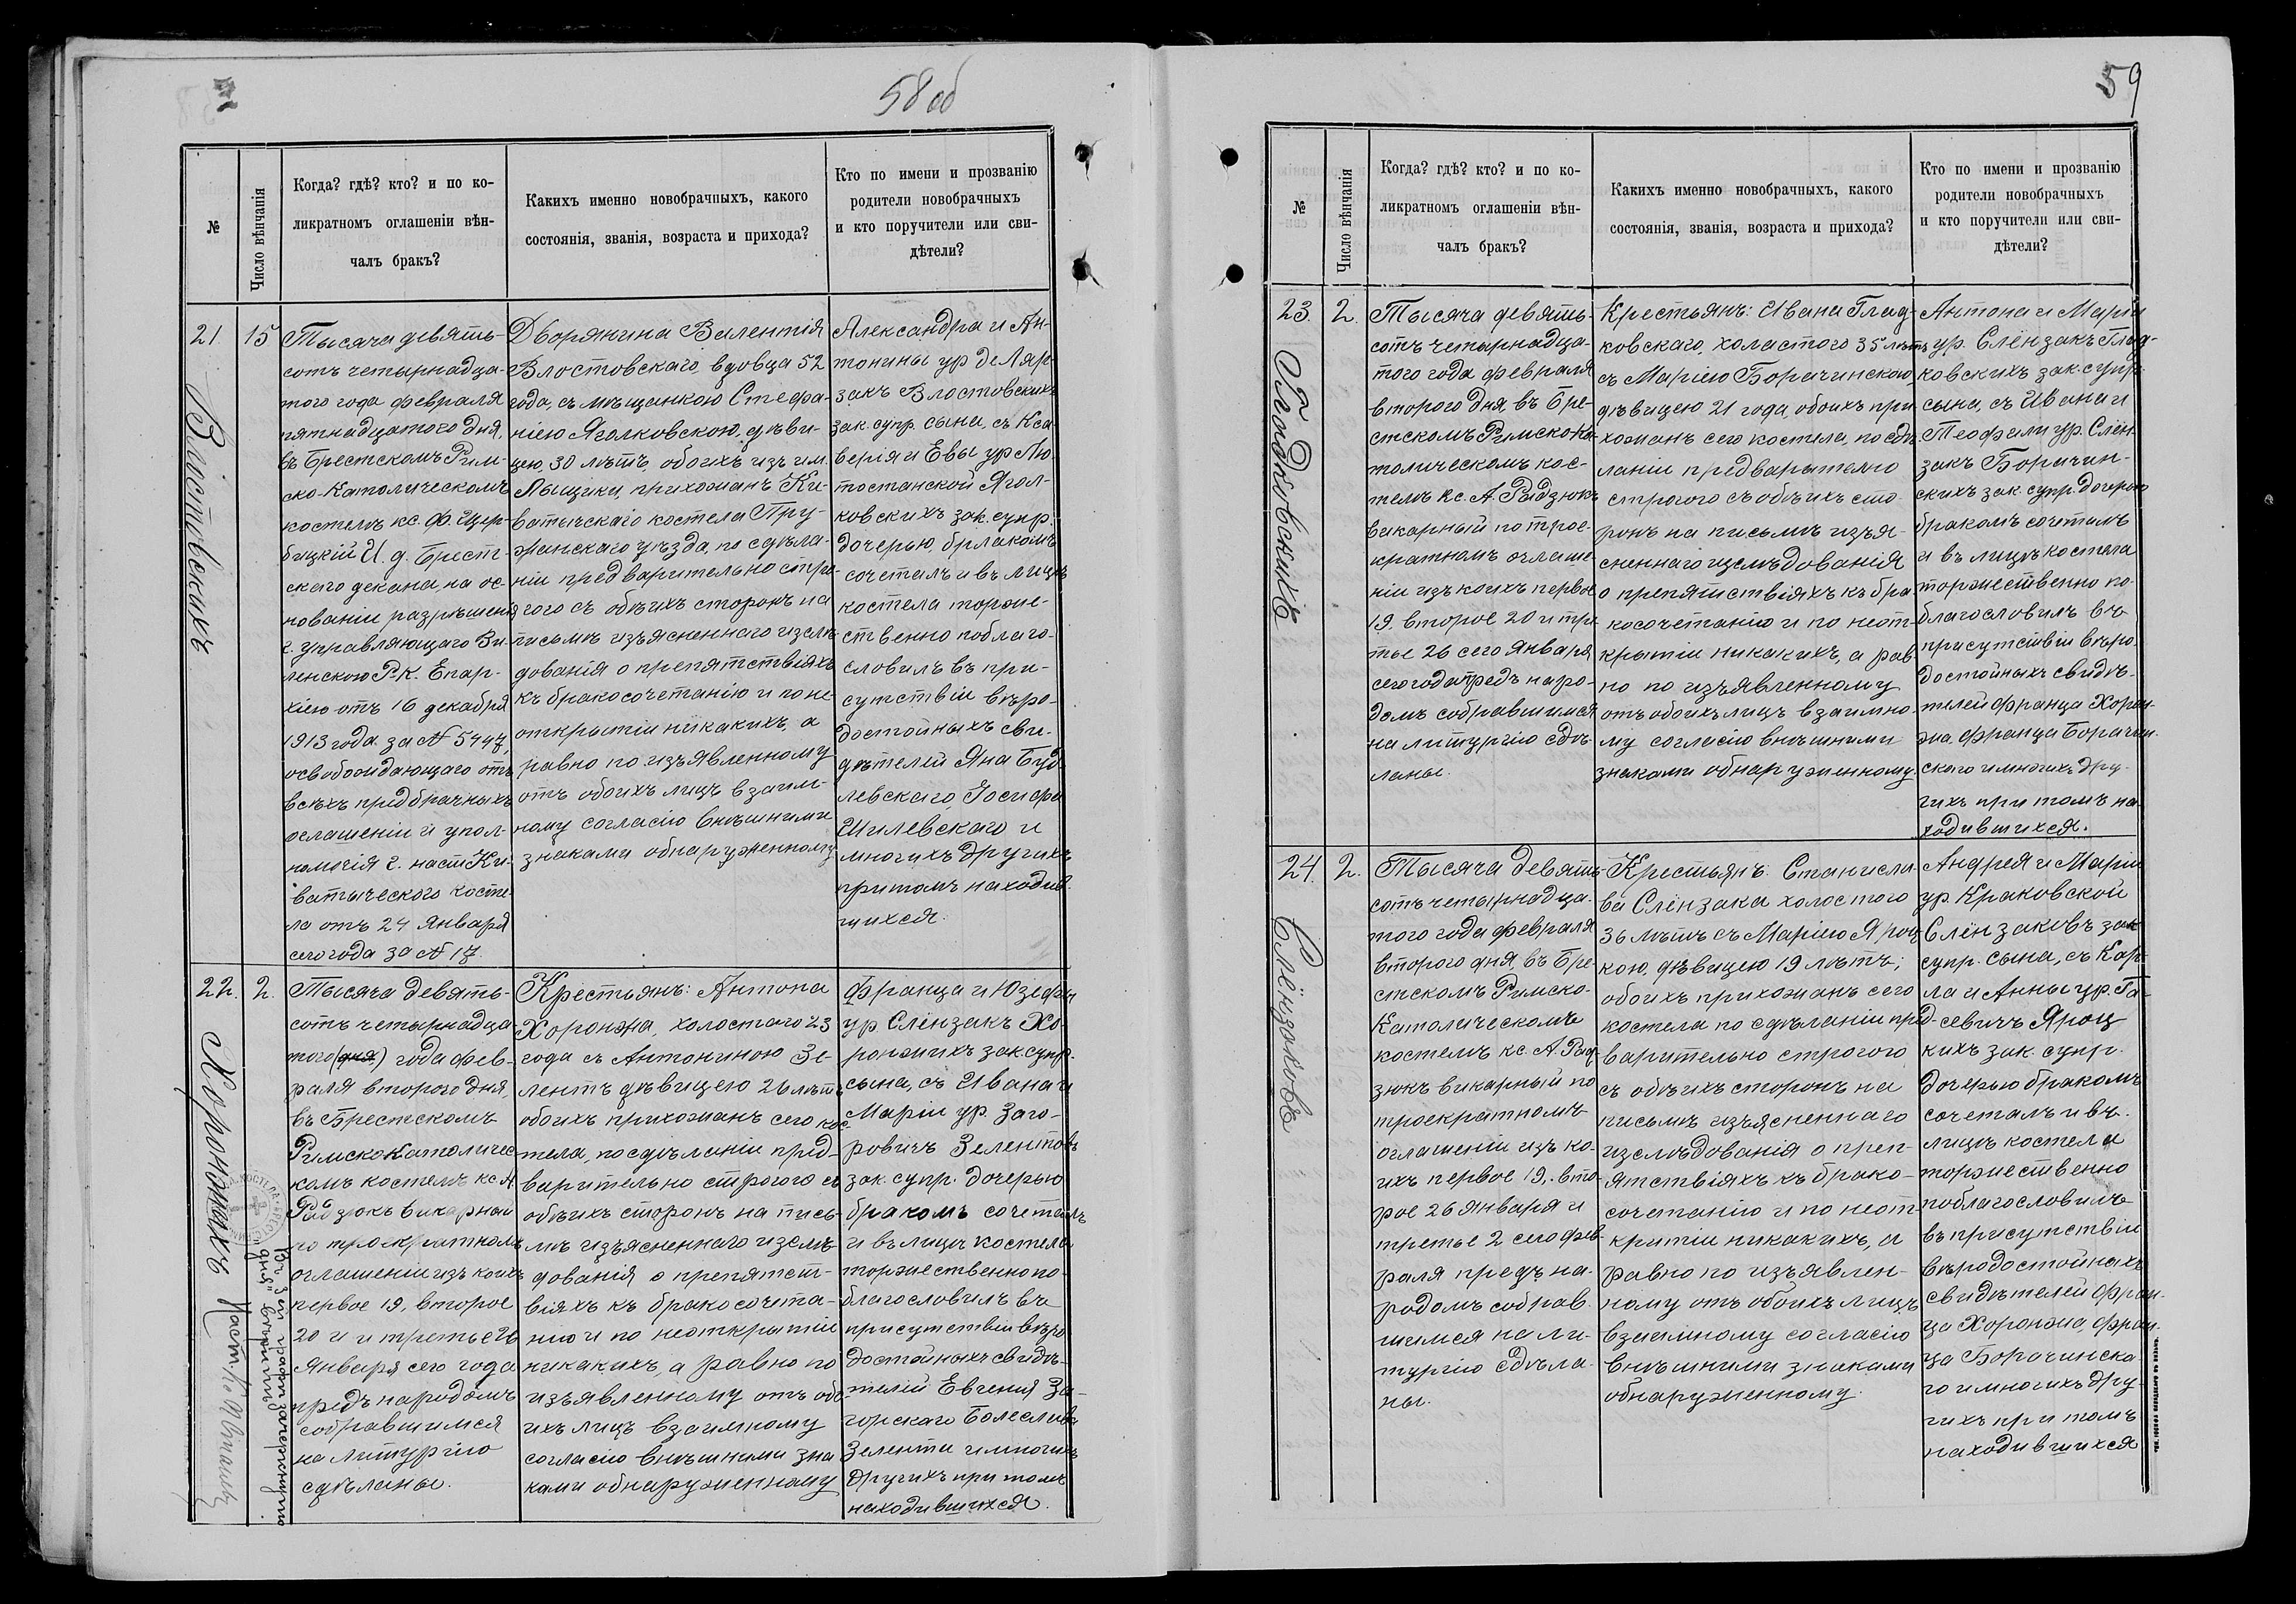 58 об
№
Число вѣнчанія
Когда? гдѣ? кто? и по ко-
ликратномъ оглашеніи вѣн-
чалъ бракъ?
Какихъ именно новобрачныхъ, какого
состоянія, званія, возраста и прихода?
Кто по имени и прозванію
родители новобрачныхъ
и кто поручители или сви-
дѣтели?
21
Влостовскихъ
15
Тысяча девять-
сотъ четырнадца-
того года февраля
пятнадцатого дня,
въ Брестскомъ Рим-
ско-Католическомъ
костелѣ кс. Ф. Щер-
бицкій И. д. Брест-
ского декана, на ос-
нованіи разрѣшенія
г. управляющаго Ви-
ленскою Р.К. Епар-
хіею отъ 16 декабря
1913 года за № 5447,
освобождающаго отъ
всѣхъ предбрачныхъ
оглашеніи и упол-
номочія г. наст. Ки-
ватыческого косте-
ла отъ 24 января
сего года за № 17.
Дворянина Валентія
Влостовскаго, вдовца 52
года, съ мѣщанкою Стефа-
ніею Яголковскою, дѣви-
цею, 30 лѣтъ, обоихъ изъ им.
Лыщики, прихожанъ Ки-
ватычскаго костела Пру-
жанскаго уѣзда, по сдѣла-
ніи предварительно стро-
гого съ обѣихъ сторонъ на
письмѣ изъясненнаго изслѣ-
дованія о препятствіяхъ
къ бракосочетанію и по не-
открытіи никакихъ, а
равно по изъявленному
отъ обоихъ лицъ взаим-
ному согласію внѣшними
знаками обнаруженному
Александра и Ан-
тонины ур. де Ляр-
закъ Влостовскихъ
зак. супр. сына, съ Кса-
верія и Евы ур. Лю-
тостанской Ягол-
ковскихъ зак. супр.
дочерью, браком
сочеталъ и въ лицѣ
костела торже-
ственно поблаго-
словилъ въ при-
сутствіи вѣро-
достойныхъ сви-
дѣтелей Яна Буд-
левскаго, Іосифа
Шилевскаго и
многихъ другихъ
притомъ находив-
шихся.
22.
Хоронжихъ
2.
Тысяча девять-
сотъ четырнадца-
того (дня) года фев-
раля второго дня,
въ Брестскомъ
Римскокатоличес-
комъ костелѣ кс. А.
Радзюкъ викарный
по троекратномъ
оглашеніи изъ коихъ
первое 19, второе
20 и и третье 26
января сего года
предъ народомъ
собравшимся
на литургію
сдѣланы.
Крестьянъ: Антона
Хоронжа, холостаго 23
года съ Антониною Зе-
лентъ дѣвицею 26 лѣтъ
обоихъ прихожанъ сего кос-
тела, по сдѣланіи пред-
варительно строгого съ
обѣихъ сторонъ на пись-
мѣ изъясненнаго изслѣ-
дованія о препятст-
віяхъ къ бракосочета-
нію и по неоткрытіи
никакихъ, а равно по
изъявленному отъ обо-
ихъ лицъ взаимному
согласію внѣшними зна-
ками обнаруженному
Франца и Юзефы
ур. Слензакъ Хо-
ронжихъ зак. супр.
сына, съ Ивана и
Маріи ур. Заго-
ровичъ Зелентовъ
зак. супр. дочерью
бракомъ сочеталъ
и въ лицѣ костела
торжественно по-
благословилъ въ
присутствіи вѣро-
достойныхъ свидѣ-
телей Евгенія За-
горскаго Болеслава
Зелента и многихъ
другихъ при томъ
находившихся.
Въ 3 ей графѣ зачеркнуто
"дня"
59
№
Число вѣнчанія
Когда? гдѣ? кто? и по ко-
ликратномъ оглашеніи вѣн-
чалъ бракъ?
Какихъ именно новобрачныхъ, какого
состоянія, званія, возраста и прихода?
Кто по имени и прозванію
родители новобрачныхъ
и кто поручители или сви-
дѣтели?
23.
Гладковскихъ
2.
Тысяча девять-
сотъ четырнадца-
того года февраля
второго дня, въ Бре-
стскомъ Римско-Ка-
толическомъ кос-
телѣ кс. А. Радзюкъ
викарный по трое-
кратномъ оглаше-
ніи изъ коихъ первое
19. второе 20 и тре-
тье 26 сего января
сего года предъ наро-
домъ собравшимся
на литургію сдѣ-
ланы.
Крестьянъ: Ивана Глад-
ковскаго, холастого 35 лѣтъ
съ Маріею Борачинскою,
дѣвицею 21 года, обоихъ при-
хожанъ сего костела, по сдѣ-
ланіи предварительно
строгого съ обѣихъ сто-
ронъ на письмѣ изъя-
сненнаго изслѣдованія
о препятствіяхъ къ бра-
косочетанію и по неот-
крытіи никакихъ, а рав-
но по изъявленному
отъ обоихъ лицъ взаимно-
му согласію внѣшними
знаками обнаруженному.
Антона и Маріи
ур. Слензакъ Глад-
ковскихъ зак. супр.
сына, съ Ивана и
Теофили ур. Слен-
закъ Борачин-
скихъ зак. супр. дочерью
бракомъ сочеталъ
и въ лицѣ костела
торжественно по-
благословилъ въ
присутствіи вѣро-
достойныхъ свидѣ-
телей Франца Хорон-
жа, Франца Борачин-
скаго и многихъ дру-
гихъ при томъ на-
ходившихся.
24.
Слензаковъ
2.
Тысяча девять-
сотъ четырнадца-
того года февраля
второго дня, въ Бре-
стскомъ Римско-
Католическомъ
костелѣ кс. А. Рад-
зюкъ викарный по
троекратномъ
оглашеніи изъ ко-
ихъ первое 19, вто-
рое 26 января и
третье 2 сего фев-
раля предъ на-
родомъ собрав-
шимся на ли-
тургію сдѣла-
ны.
Крестьянъ: Станисла-
ва Слензака холостого
36 лѣтъ съ Маріею Яроц-
кою, дѣвицею 19 лѣтъ;
обоихъ прихожанъ сего
костела по сдѣланіи пред-
варительно строгого
съ обѣихъ сторонъ на
письмѣ изъясненнаго
изслѣдованія о преп-
ятствіяхъ къ брако-
сочетанію и по неот-
критіи никакихъ, а
равно по изъявлен-
ному отъ обоихъ лицъ
взаимному согласію
внѣшними знаками
обнаруженному.
Андрея и Маріи
ур. Краковской
Слензаковъ зак.
супр. сына, съ Кар-
ла и Анны ур. Га-
севичъ Яроц
кихъ зак. супр.
дочерью бракомъ
сочеталъ и въ
лицѣ костела
торжественно
поблагословилъ
въ присутствіи
вѣродостойныхъ
свидѣтелей Фран-
ца Хоронжа, Фран-
ца Борачинска-
го и многихъ дру-
гихъ при томъ
находившихся